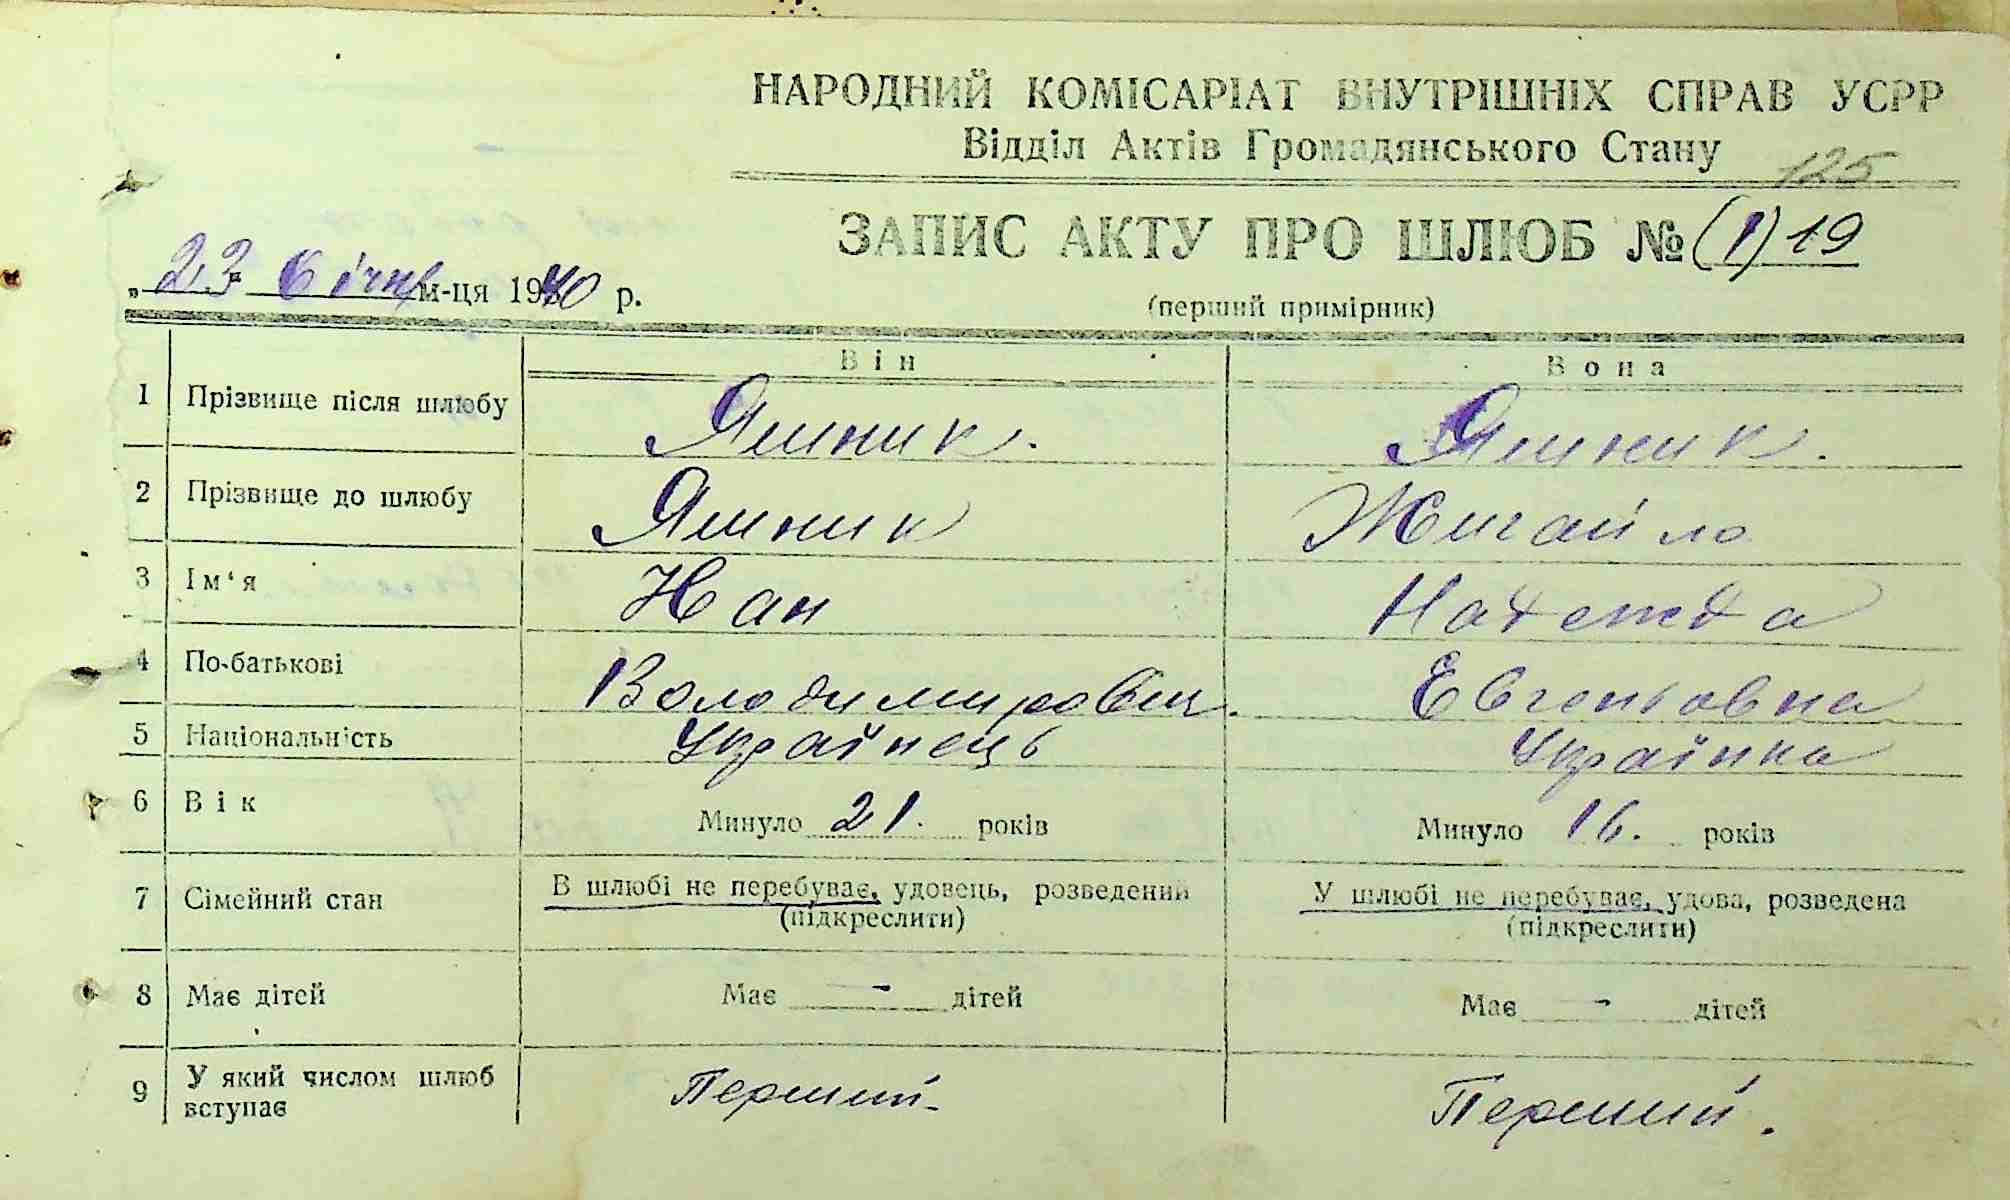 НАРОДНИЙ КОМІСАРІАТ ВНУТРІШНІХ СПРАВ УСРР
Відділ Актів Громадянського Стану
125
ЗАПИС АКТУ ПРО ШЛЮБ № (1) 19
„23" Січня м-ця 1940 р.
(перший примірник)
Він Вона
1 Прізвище після шлюбу Ямник. Ямник.
2 Прізвище до шлюбу Ямник Жигайло
3 Ім‘я Иван Надежда
4 По-батькові Володимирович. Евгеньовна
5 Національність Українець Українка
6 Вік Минуло 21. років Минуло 16. років
7 Сімейний стан В шлюбі не перебуває, удовець, розведений У шлюбі не перебуває, удова, розведена
(підкреслити) (підкреслити)
8 Має дітей Має - дітей Має - дітей
9 У який числом шлюб вступає Перший- Перший.